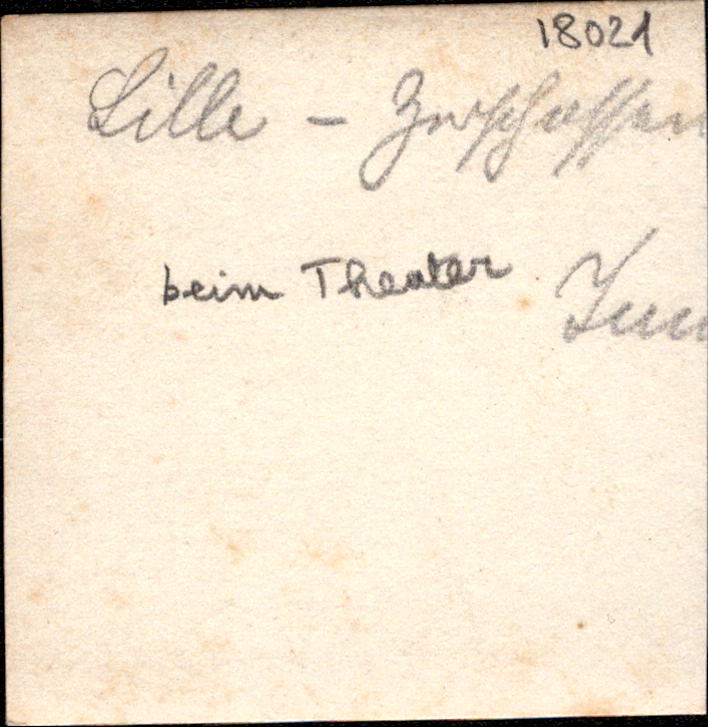 18021
Lille - Zerschossen
beim Theater